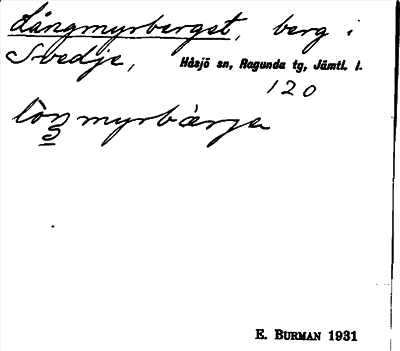 Långmyrberget, berg i
Svedje, Håsjö sn, Ragunda tg, Jämtl. l.
120
E. BURMAN 1931